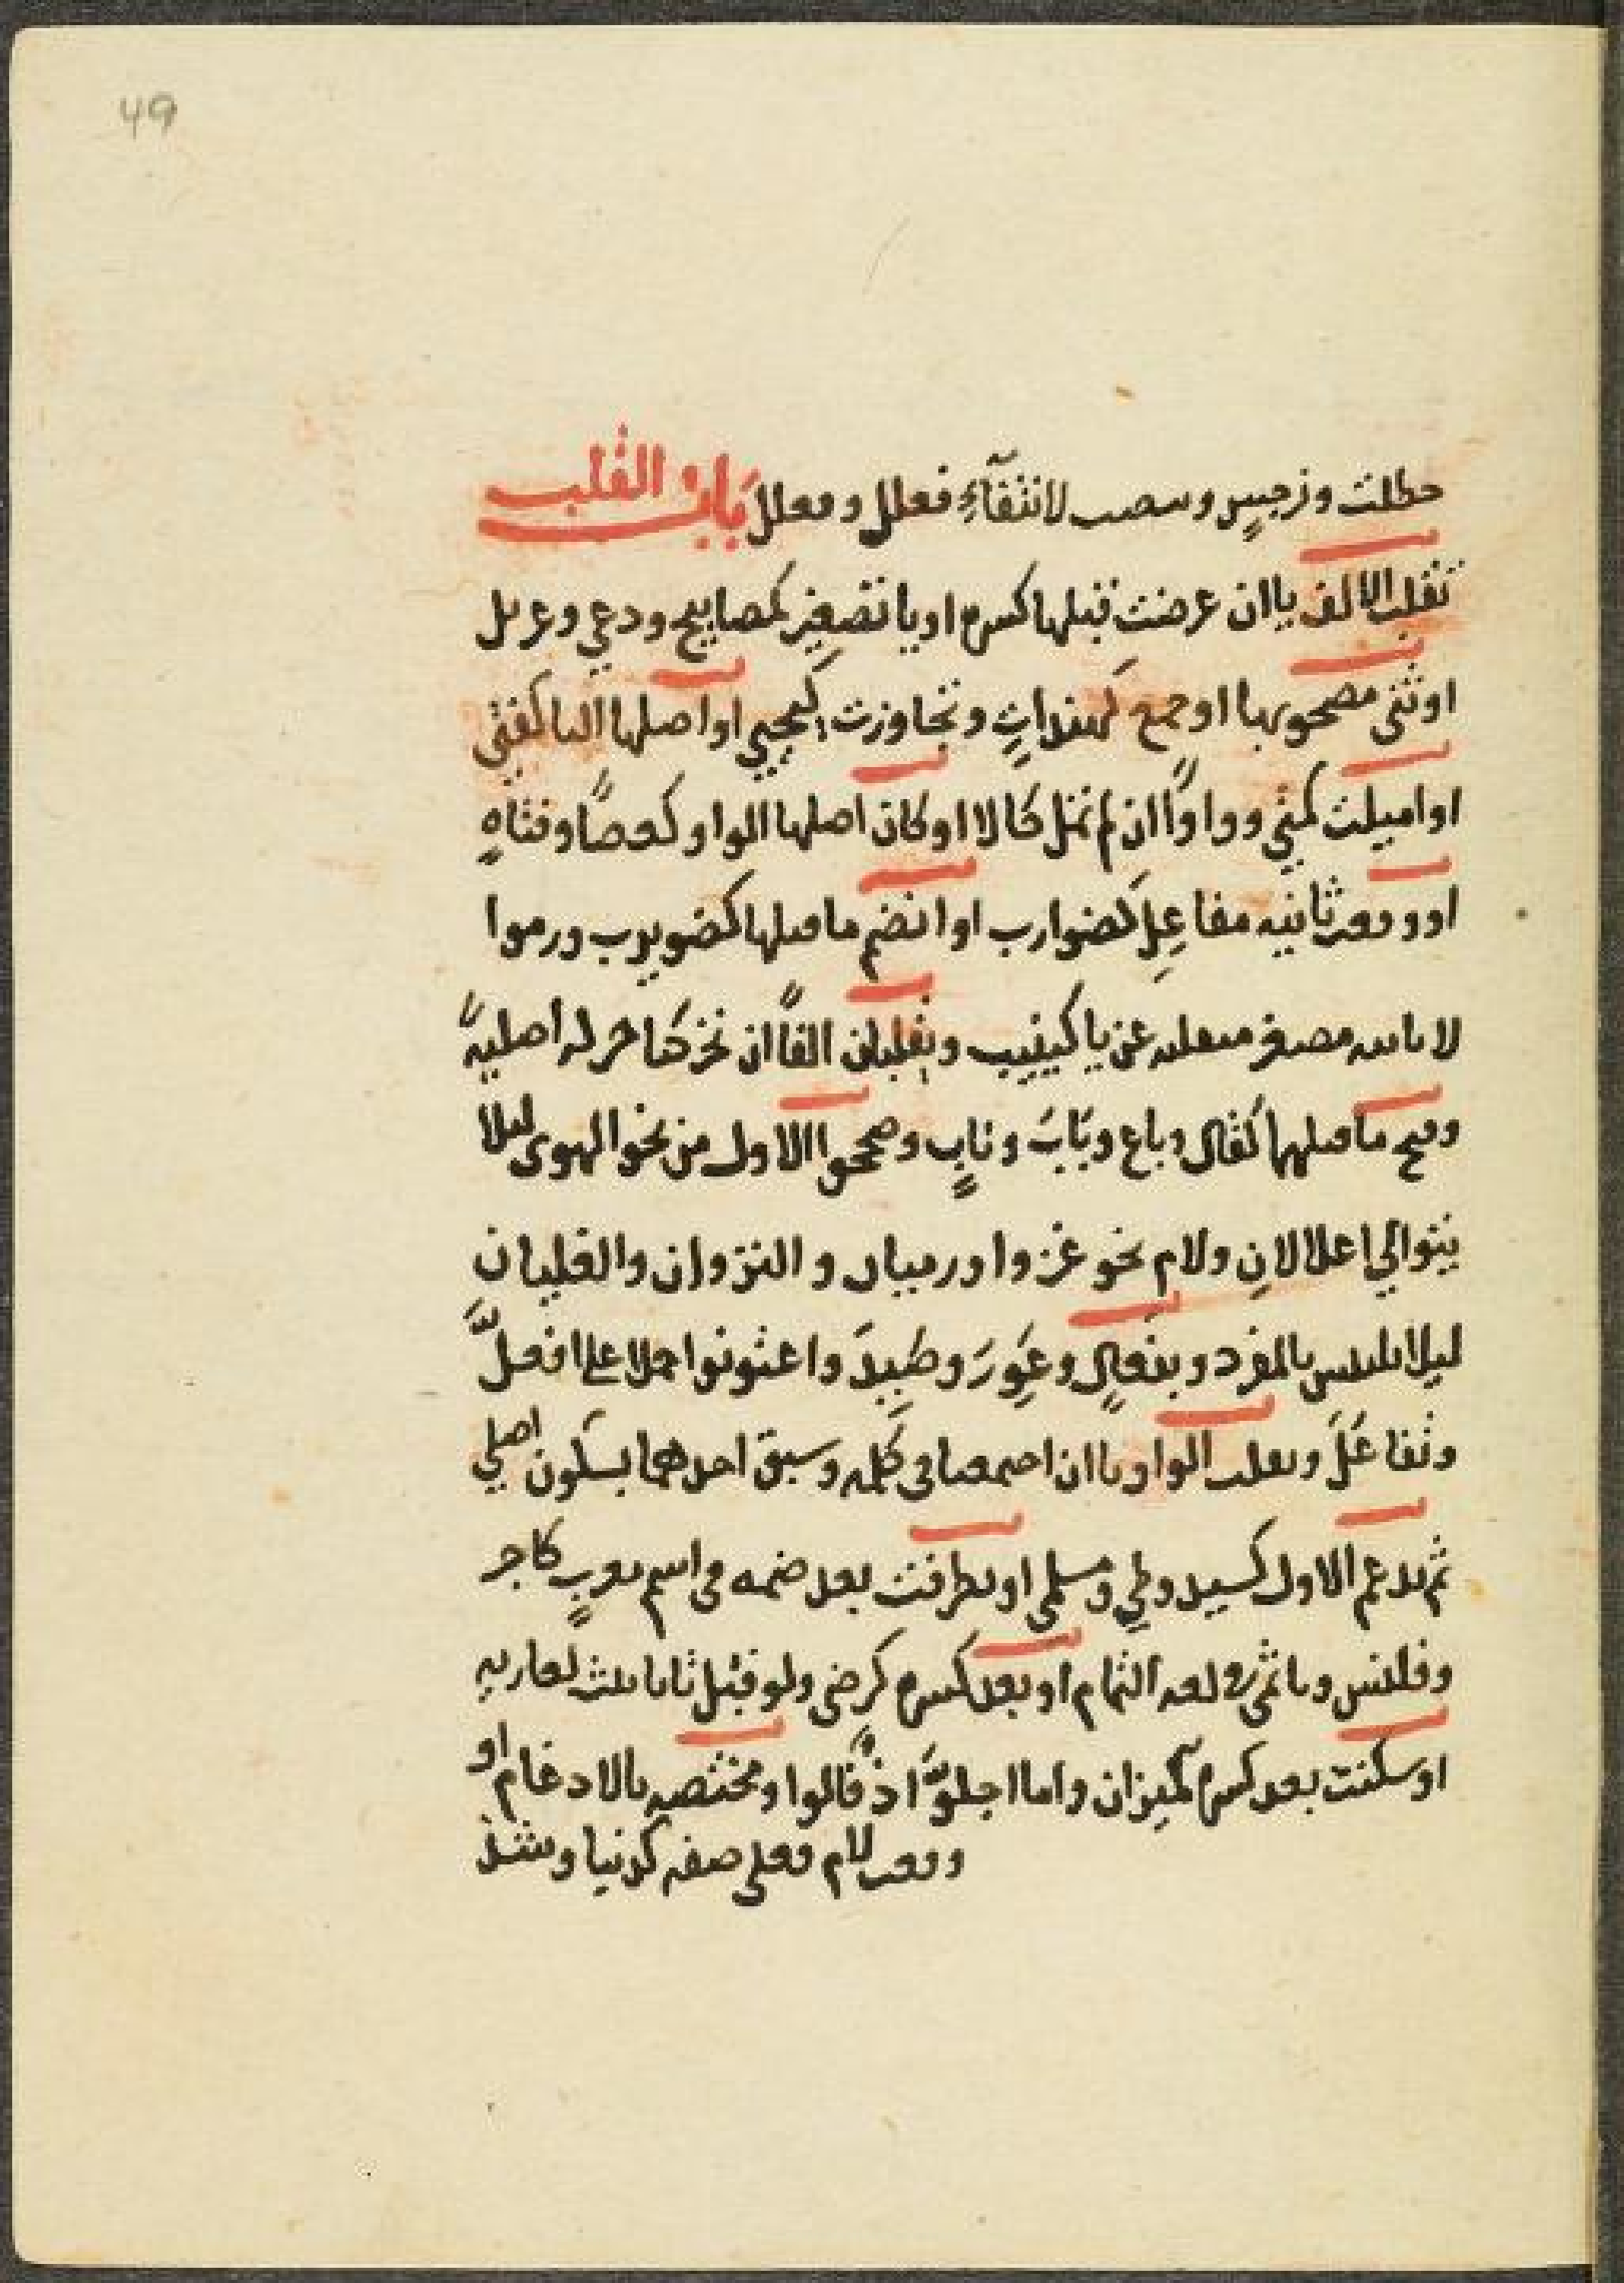 49
حظلت ونرجسٍ وسصب لانتفآءِ فعلل وفعلل بابُ القلب
تقلب الالف يا ان عرضتِ قبلها كسرة او يا تصغير كمصابيح ودعي وغزيل
او ثنى مصحوبها او جمع كهنداتٍ وتجاوزت كيحيي او اصلها اليا كفتى
او اميلت كمتى وواوًا ان لم تمل كالا او كان اصلها الواو كعصًا وفتاهٍ
او وقعت ثانيه مفاعِل كضوارب او انضم ما قبلها كضويرب ورموا
لا ثانيه مصغر منقلبه عن يا كنييب وتقلبان الفًا ان تحركتا حركه اصليهً
وفتح ما قبلهما كقال وباع وبَابَ ونابٍ وصححوا الاول من نحو الهوى ليلا
يتوالي اعلالانِ ولام نحو غزوا ورميان والنزوان والغليان
ليلا يلتبس بالمفرد وبفعالٍ وعَوِرَ وصَيِدَ واعتونوا حملا على افعلَّ
وتفاعَلَ وتقلب الواو يا ان اجتمعتا في كلمه وسبق احدهما بسكون اصلي
ثم تدغم الاول كسيد وطي ومسلمي او تطرفت بعد ضمه في اسم معربٍ كاجر
وقلنس ويا ثمى في لغه التمام او بعد كسرة كرضي ولو قبل تا تانيث كغازيه
او سكنت بعد كسرة كميزان واما اجلوَّاذ قالوا ومختصه بالادغام او
وقعت لام فعلى صفه كدنيا وشذ